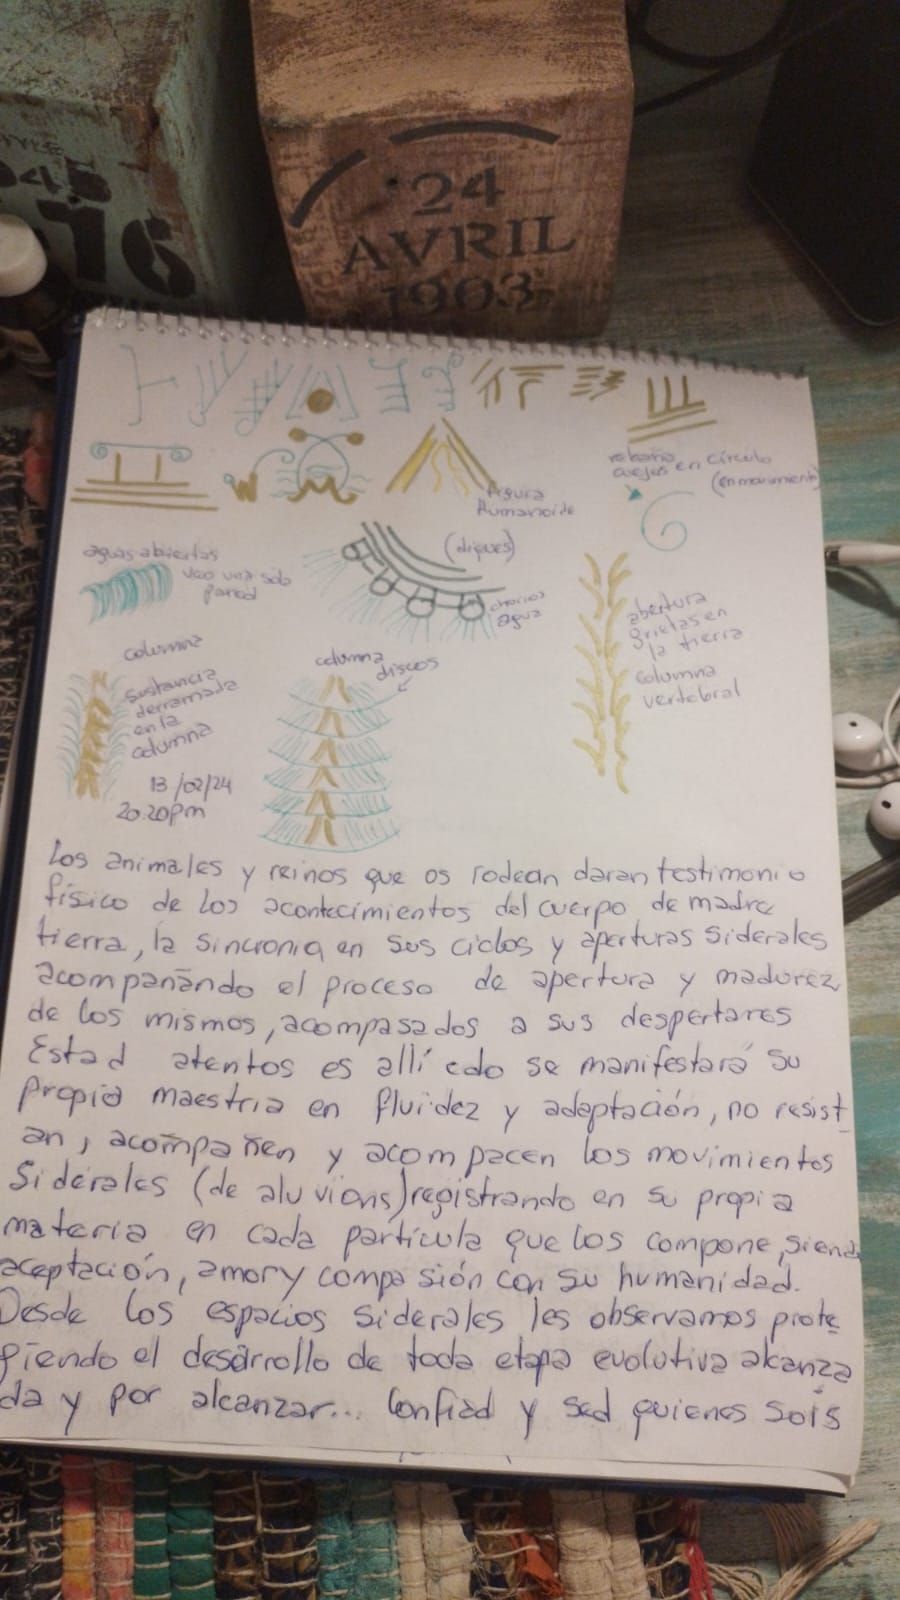 STYLE
045
76
24
AVRIL
1903
rebaño
ovejas en círculo
(en movimiento)
figura
Humanoide
(diques)
aguas abiertas
veo una sola
pared
chorros
agua
abertura
grietas en
la tierra
columna
vertebral
columna
sustancia
derramada
en la
columna
columna
discos
13/02/24
20:20pm
Los animales y reinos que os rodean daran testimonio
físico de los acontecimientos del cuerpo de madre
tierra, la sincronia en sus ciclos y aperturas siderales
acompañando el proceso de apertura y madurez
de los mismos, acompasados a sus despertares
Estad atentos es allí cdo se manifestará su
propia maestria en fluidez y adaptación, no resist
an, acompañen y acompacen los movimientos
Siderales (de aluvions) registrando en su propia
materia en cada partícula que los compone, siendo
aceptación, amor y compasión con su humanidad.
Desde los espacios siderales les observamos prote
giendo el desarrollo de toda etapa evolutiva alcanza
da y por alcanzar... Confiad y sed quienes sois